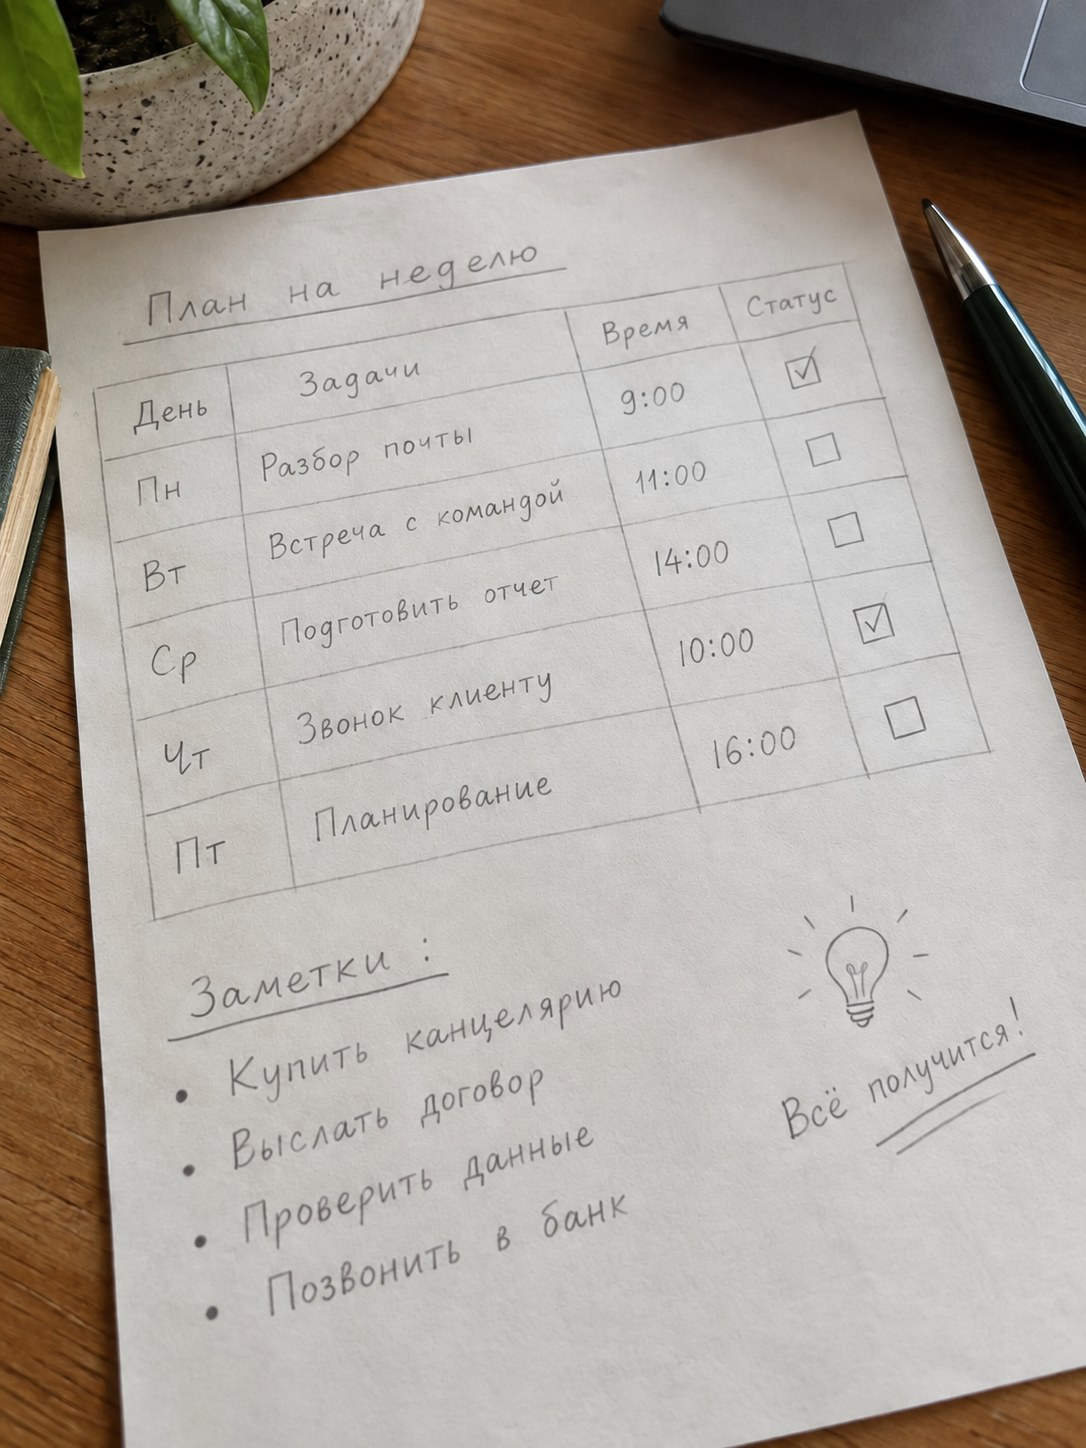 План на неделю
День Задачи Время Статус
Пн Разбор почты 9:00 ☑
Вт Встреча с командой 11:00 ☐
Ср Подготовить отчет 14:00 ☐
Чт Звонок клиенту 10:00 ☑
Пт Планирование 16:00 ☐
Заметки :
• Купить канцелярию
• Выслать договор
• Проверить данные
• Позвонить в банк
Всё получится!